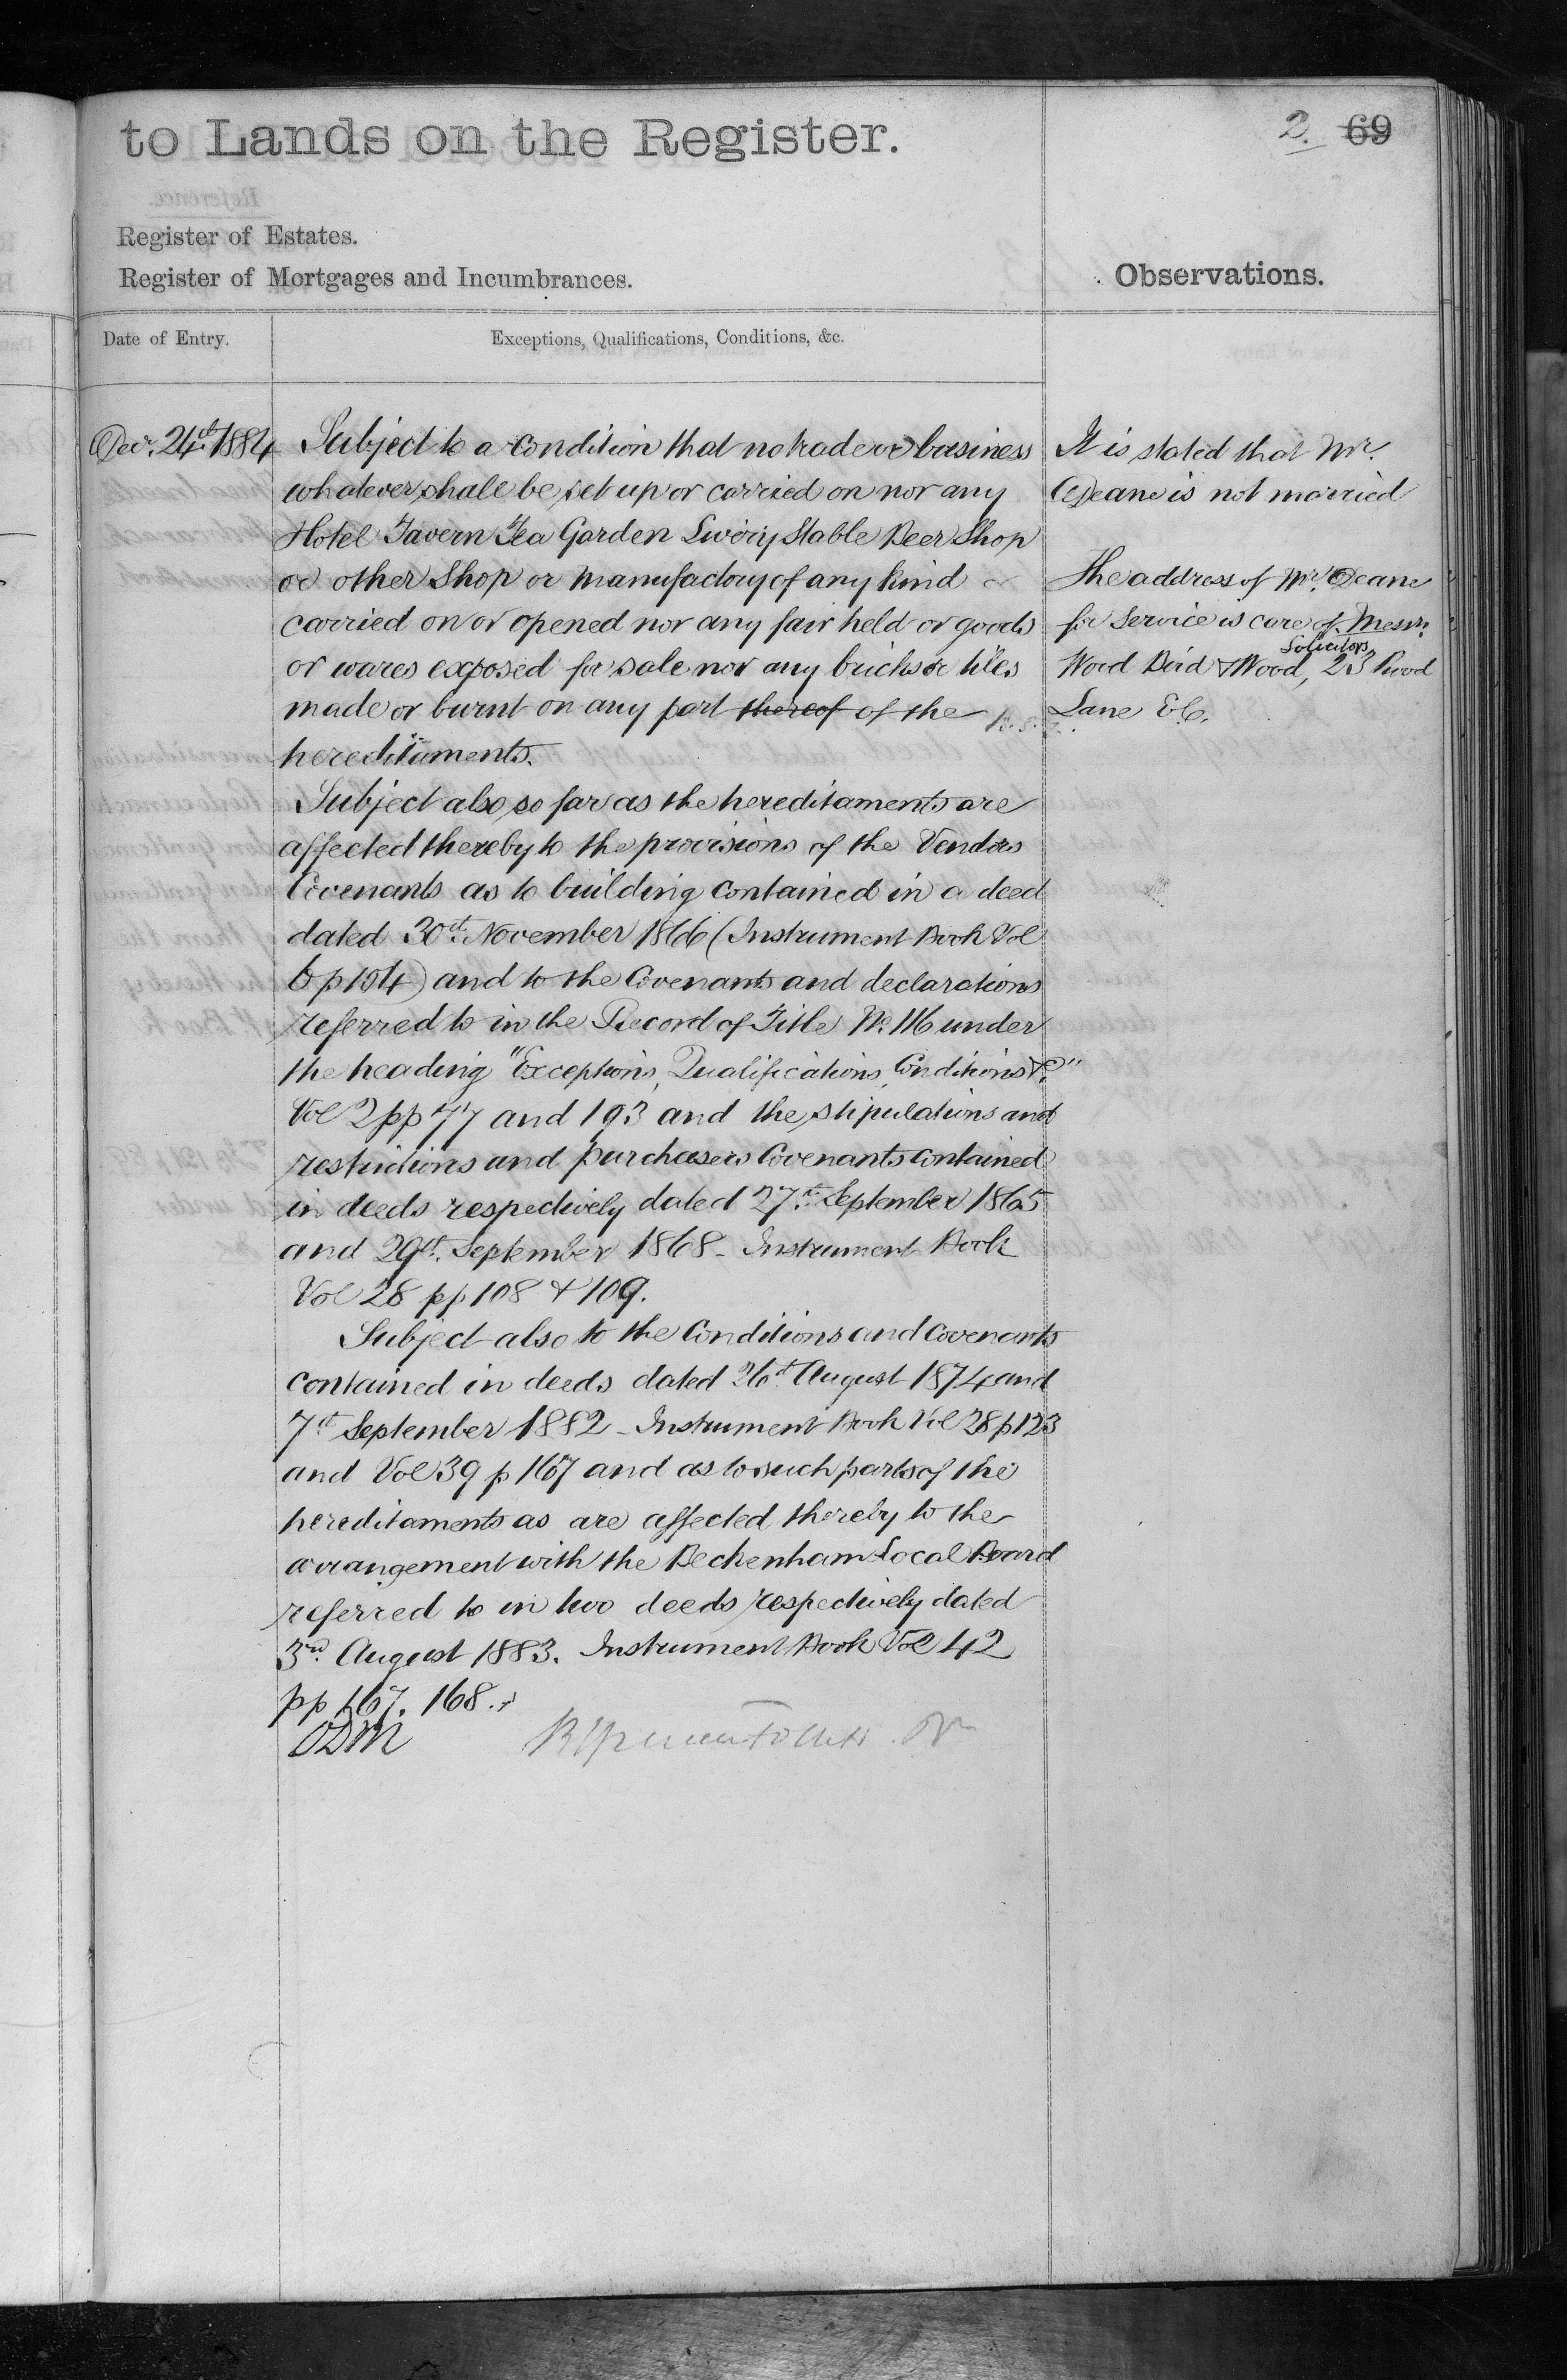 to Lands on the Register.
2. 69
Register of Estates.
Register of Mortgages and Incumbrances.
Observations.
Date of Entry.
Exceptions, Qualifications, Conditions, &c.
Decr. 24th 1884
Subject to a condition that no trade or business
whatever shall be set up or carried on nor any
Hotel Tavern Tea Garden Livery Stable Beer Shop
or other Shop or Manufactory of any kind
carried on or opened nor any fair held or goods
or wares exposed for sale nor any bricks or tiles
made or burnt on any part thereof of the
hereditaments.
Subject also so far as the hereditaments are
affected thereby to the provisions of the Vendors
Covenants as to building contained in a deed
dated 30th November 1866 (Instrument Book Vol
6 p 104) and to the Covenants and declarations
referred to in the Record of Title No. 116 under
the heading "Exceptions, Qualifications, Conditions &c"
Vol 2 pp 77 and 193 and the stipulations and
restrictions and purchasers Covenants contained
in deeds respectively dated 27th September 1865
and 29th September 1868 - Instrument Book
Vol 28 pp 108 & 109.
Subject also to the Conditions and Covenants
contained in deeds dated 26th August 1874 and
7th September 1882 - Instrument Book Vol 28 p 123
and Vol 39 p 167 and as to such parts of the
hereditaments as are affected thereby to the
arrangement with the Beckenham Local Board
referred to in two deeds respectively dated
3rd August 1883. Instrument Book Vol 42
pp 167. 168.
ODM
It is stated that Mr.
Deane is not married
The address of Mr. Deane
for service is care of Messrs.
Wood Bird & Wood, Solicitors, 23 Rood
Lane E.C.